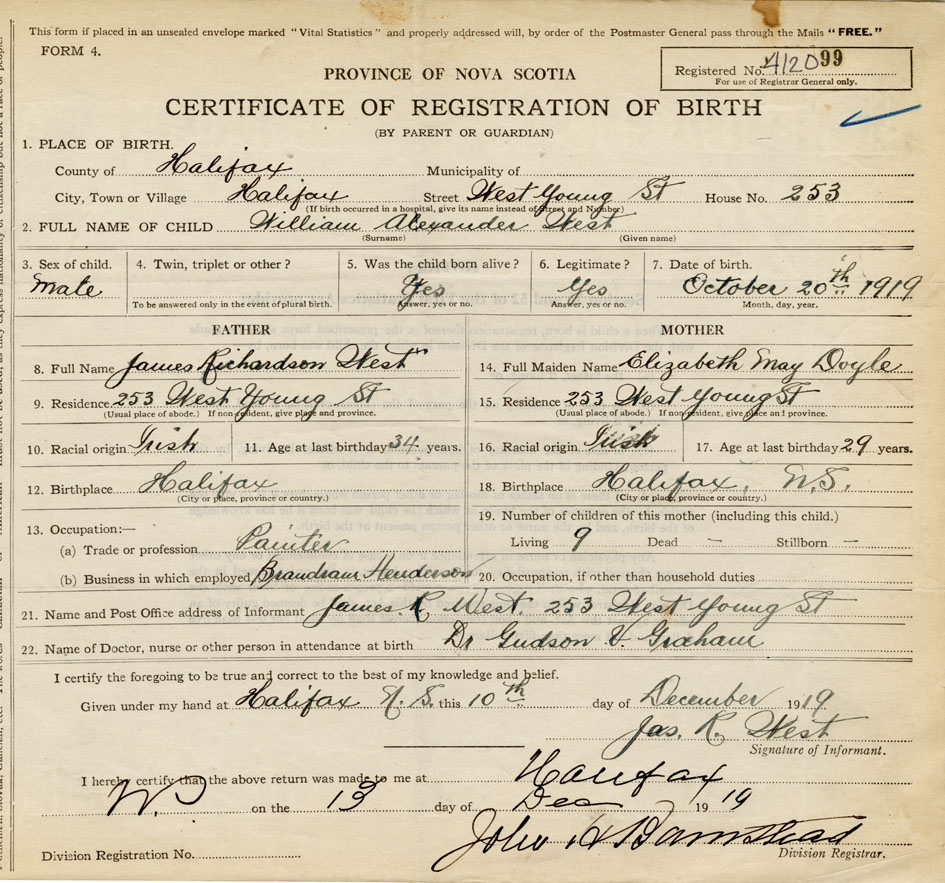 This form if placed in an unsealed envelope marked "Vital Statistics" and properly addressed will, by order of the Postmaster General pass through the Mails "FREE."
FORM 4.
Registered No. 412099
For use of Registrar General only.
PROVINCE OF NOVA SCOTIA
CERTIFICATE OF REGISTRATION OF BIRTH
(BY PARENT OR GUARDIAN)
1. PLACE OF BIRTH.
County of Halifax Municipality of
City, Town or Village Halifax Street West Young St House No. 253
(If birth occurred in a hospital, give its name instead of Street and Number)
2. FULL NAME OF CHILD William Alexander West
(Surname) (Given name)
3. Sex of child. 4. Twin, triplet or other? 5. Was the child born alive? 6. Legitimate? 7. Date of birth.
Male Yes Yes October 20th 1919
To be answered only in the event of plural birth. Answer, yes or no. Answer, yes or no. Month, day, year.
FATHER MOTHER
8. Full Name James Richardson West 14. Full Maiden Name Elizabeth May Doyle
9. Residence 253 West Young St 15. Residence 253 West Young St
(Usual place of abode.) If non-resident, give place and province. (Usual place of abode.) If non-resident, give place and province.
10. Racial origin Irish 11. Age at last birthday 34 years. 16. Racial origin Irish 17. Age at last birthday 29 years.
12. Birthplace Halifax 18. Birthplace Halifax, N.S.
(City or place, province or country.) (City or place, province or country.)
13. Occupation:— 19. Number of children of this mother (including this child.)
(a) Trade or profession Painter Living 9 Dead — Stillborn —
(b) Business in which employed Brandram Henderson 20. Occupation, if other than household duties
21. Name and Post Office address of Informant James. R West. 253 West Young St
22. Name of Doctor, nurse or other person in attendance at birth Dr Gudson V. Graham
I certify the foregoing to be true and correct to the best of my knowledge and belief.
Given under my hand at Halifax N.S. this 10th day of December 1919
Jas. R. West
Signature of Informant.
I hereby certify that the above return was made to me at Halifax
on the 13 day of Dec 1919
John A Barnstead
Division Registration No. Division Registrar.